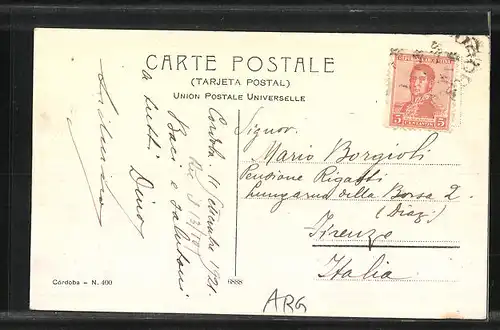 CARTE POSTALE
(TARJETA POSTAL)
UNION POSTALE UNIVERSELLE
REPUBLICA ARGENTINA
5 CENTAVOS 5
Signor
Mario Borgioli
Pensione Rigatti
Lungarno della Borsa 2
(Diaz)
Firenze
Italia
Cordoba 10 1921.
Baci e
a tutti Dino
Córdoba – N. 400
6888
ARG